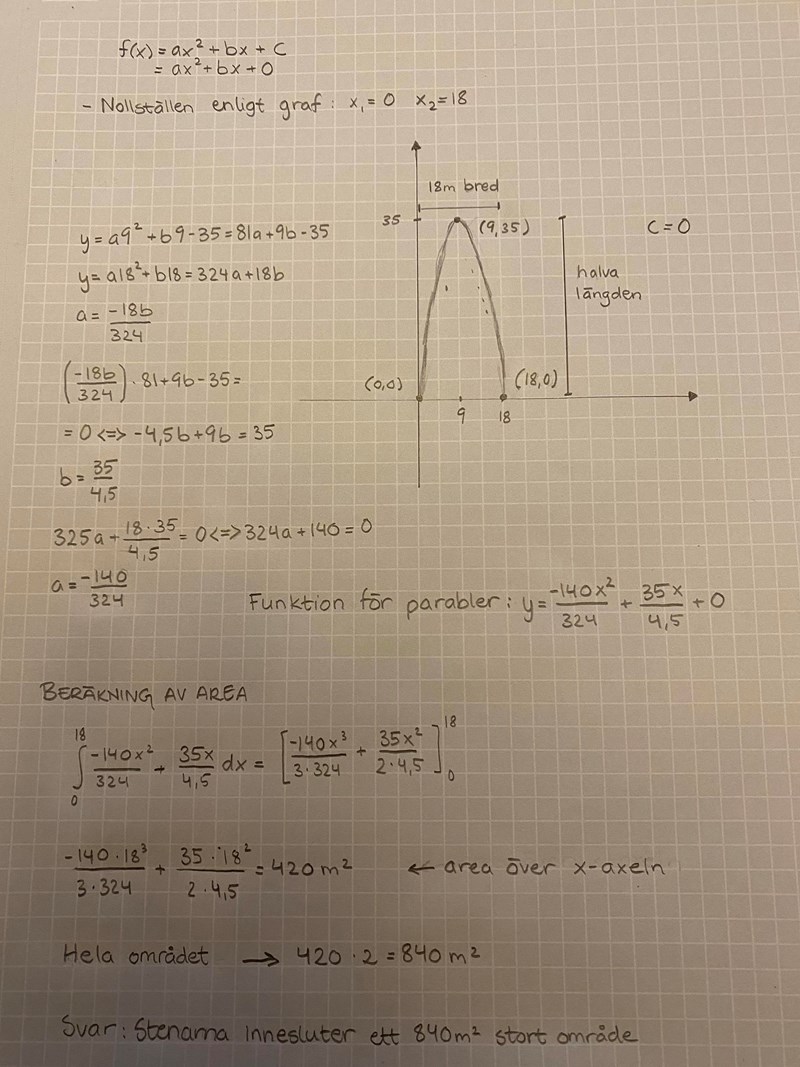 f(x) = ax² + bx + C
= ax² + bx + 0
- Nollställen enligt graf: x₁ = 0 x₂ = 18
18m bred
35
(9,35)
C = 0
halva
längden
(0,0)
(18,0)
9
18
y = a9² + b9 - 35 = 81a + 9b - 35
y = a18² + b18 = 324a + 18b
a = -18b/324
(-18b/324) · 81 + 9b - 35 =
= 0 <=> -4,5b + 9b = 35
b = 35/4,5
325a + 18·35/4,5 = 0 <=> 324a + 140 = 0
a = -140/324
Funktion för parabler: y = -140x²/324 + 35x/4,5 + 0
BERÄKNING AV AREA
∫₀¹⁸ -140x²/324 + 35x/4,5 dx = [-140x³/3·324 + 35x²/2·4,5]₀¹⁸
-140·18³/3·324 + 35·18²/2·4,5 = 420 m² ← area över x-axeln
Hela området → 420 · 2 = 840 m²
Svar: Stenarna innesluter ett 840m² stort område